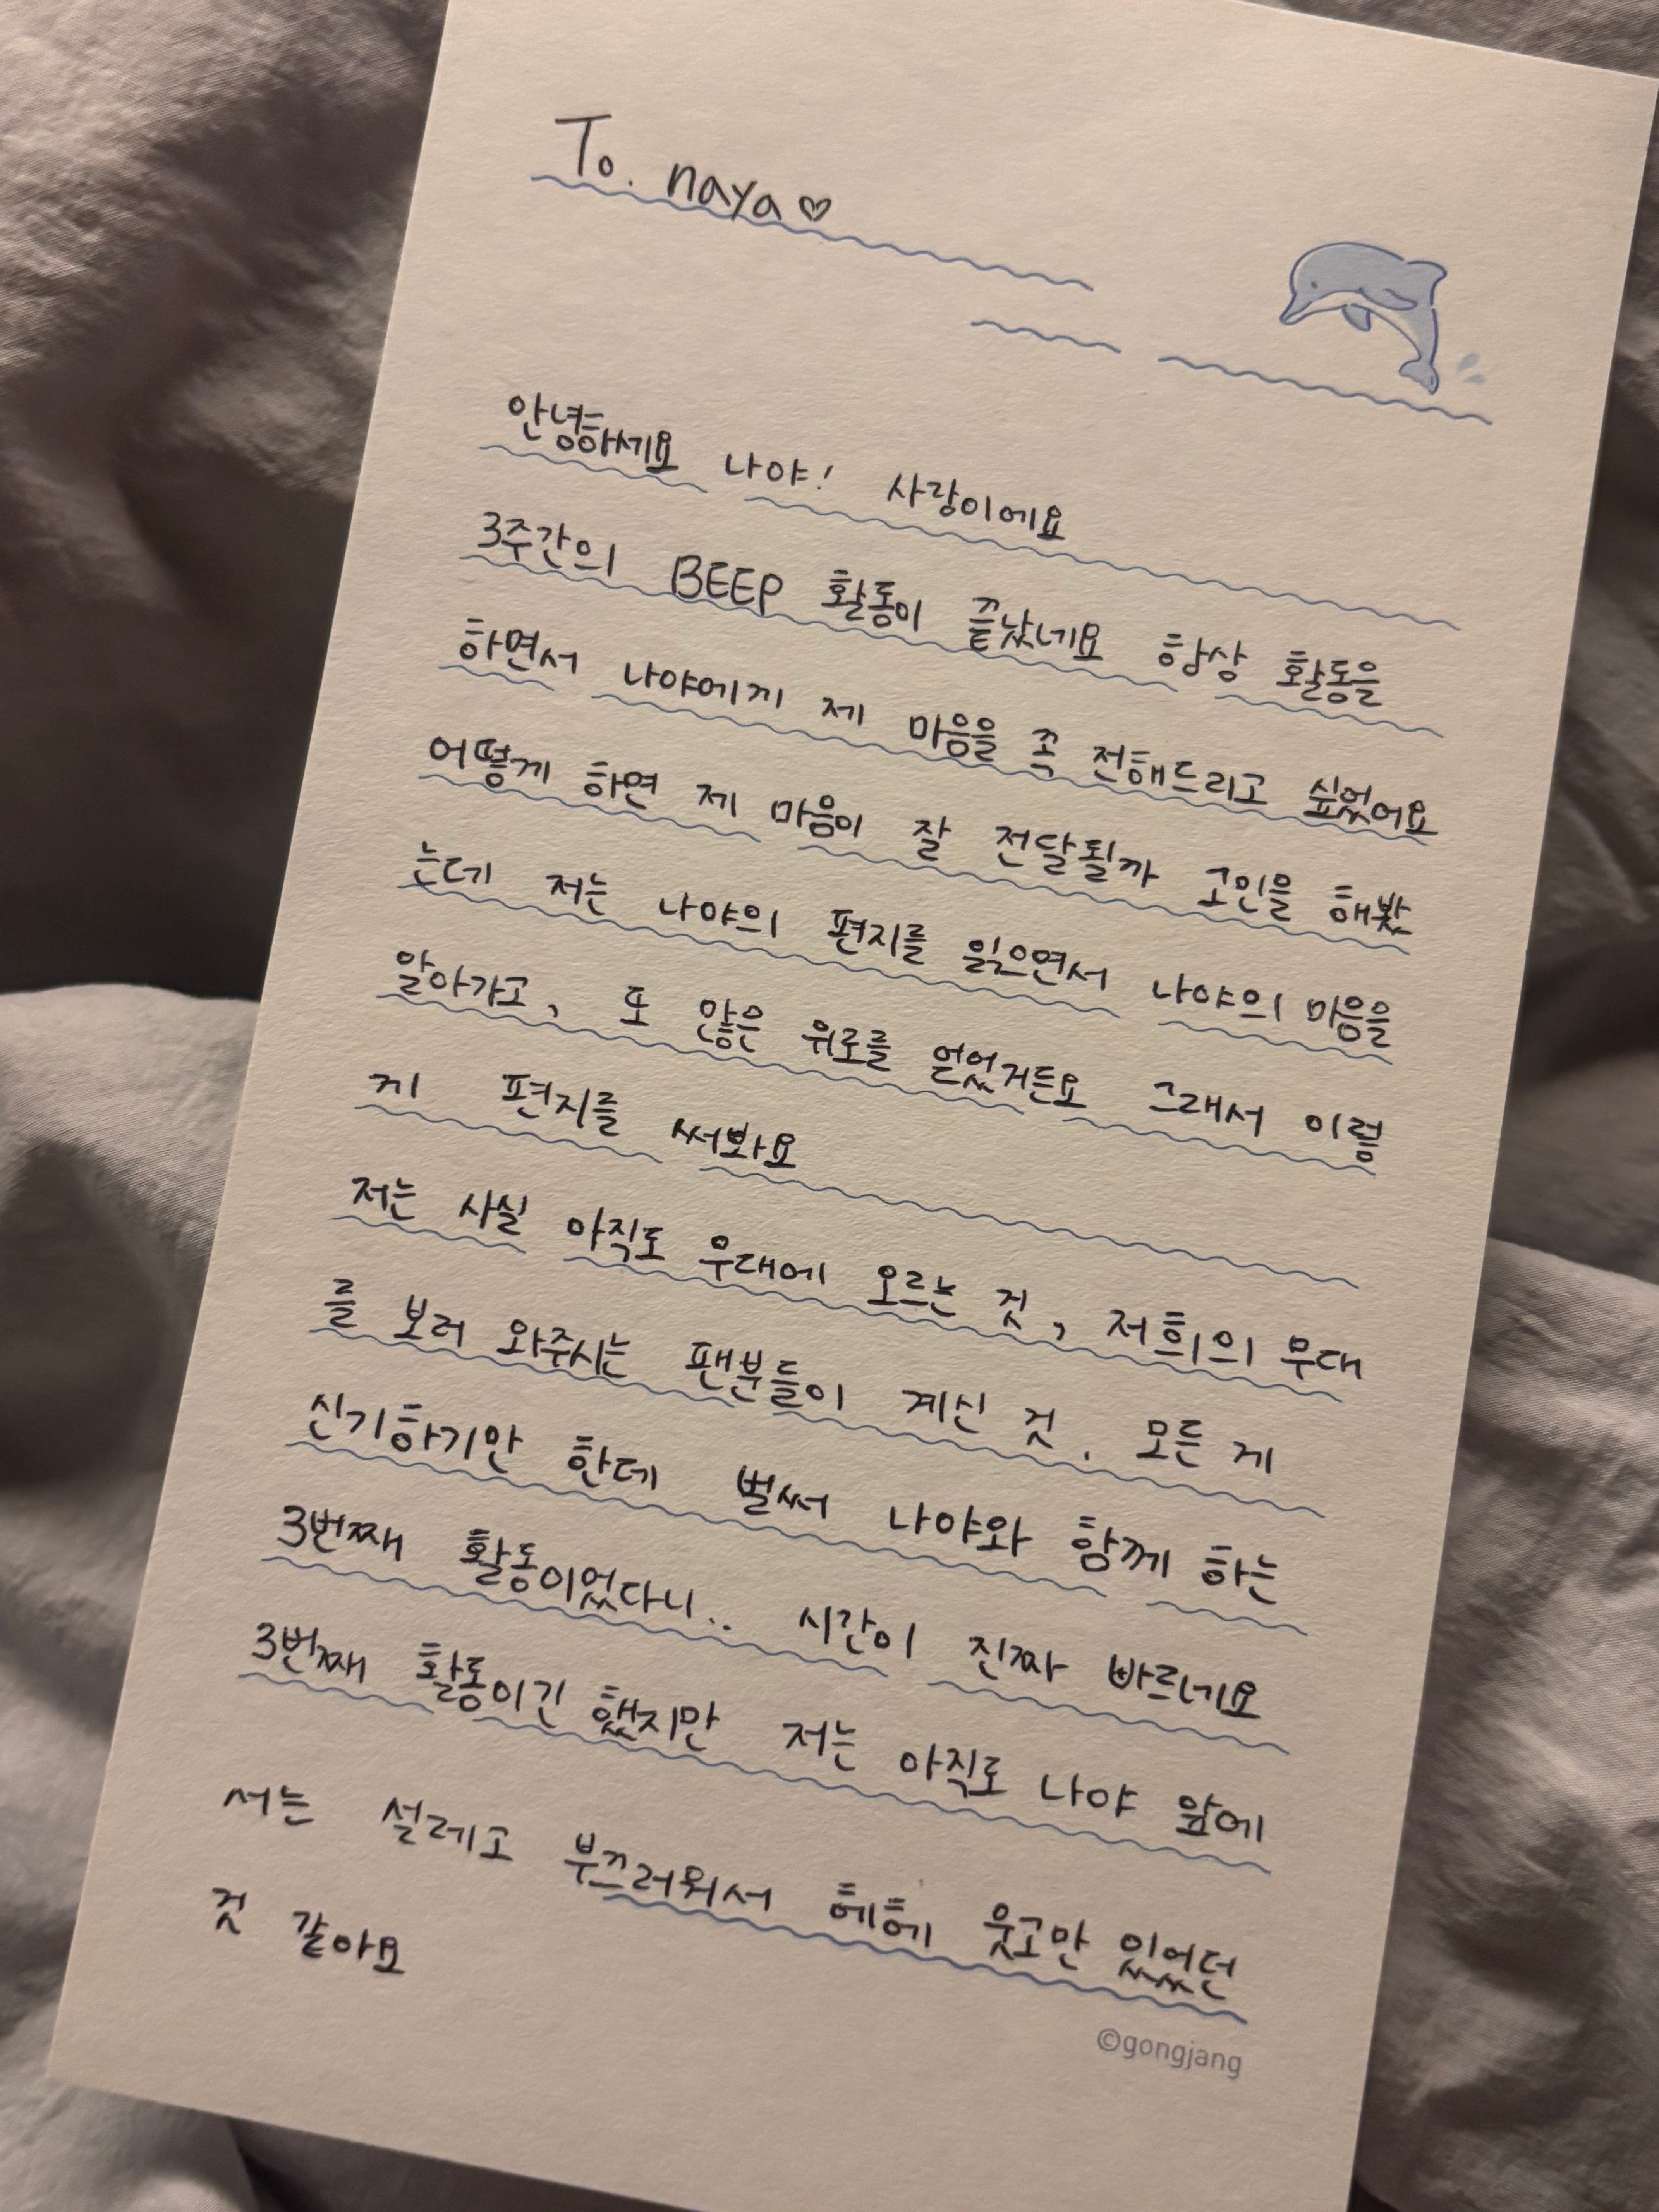 To. naya♡
안녕하세요 나야! 사랑이에요
3주간의 BEEP 활동이 끝났네요 항상 활동을
하면서 나야에게 제 마음을 꼭 전해드리고 싶었어요
어떻게 하면 제 마음이 잘 전달될까 고민을 해봤
는데 저는 나야의 편지를 읽으면서 나야의 마음을
알아가고, 또 많은 위로를 얻었거든요 그래서 이렇
게 편지를 써봐요
저는 사실 아직도 무대에 오르는 것, 저희의 무대
를 보러 와주시는 팬분들이 계신 것. 모든 게
신기하기만 한데 벌써 나야와 함께 하는
3번째 활동이었다니.. 시간이 진짜 빠르네요
3번째 활동이긴 했지만 저는 아직도 나야 앞에
서는 설레고 부끄러워서 헤헤 웃고만 있었던
것 같아요
©gongjang